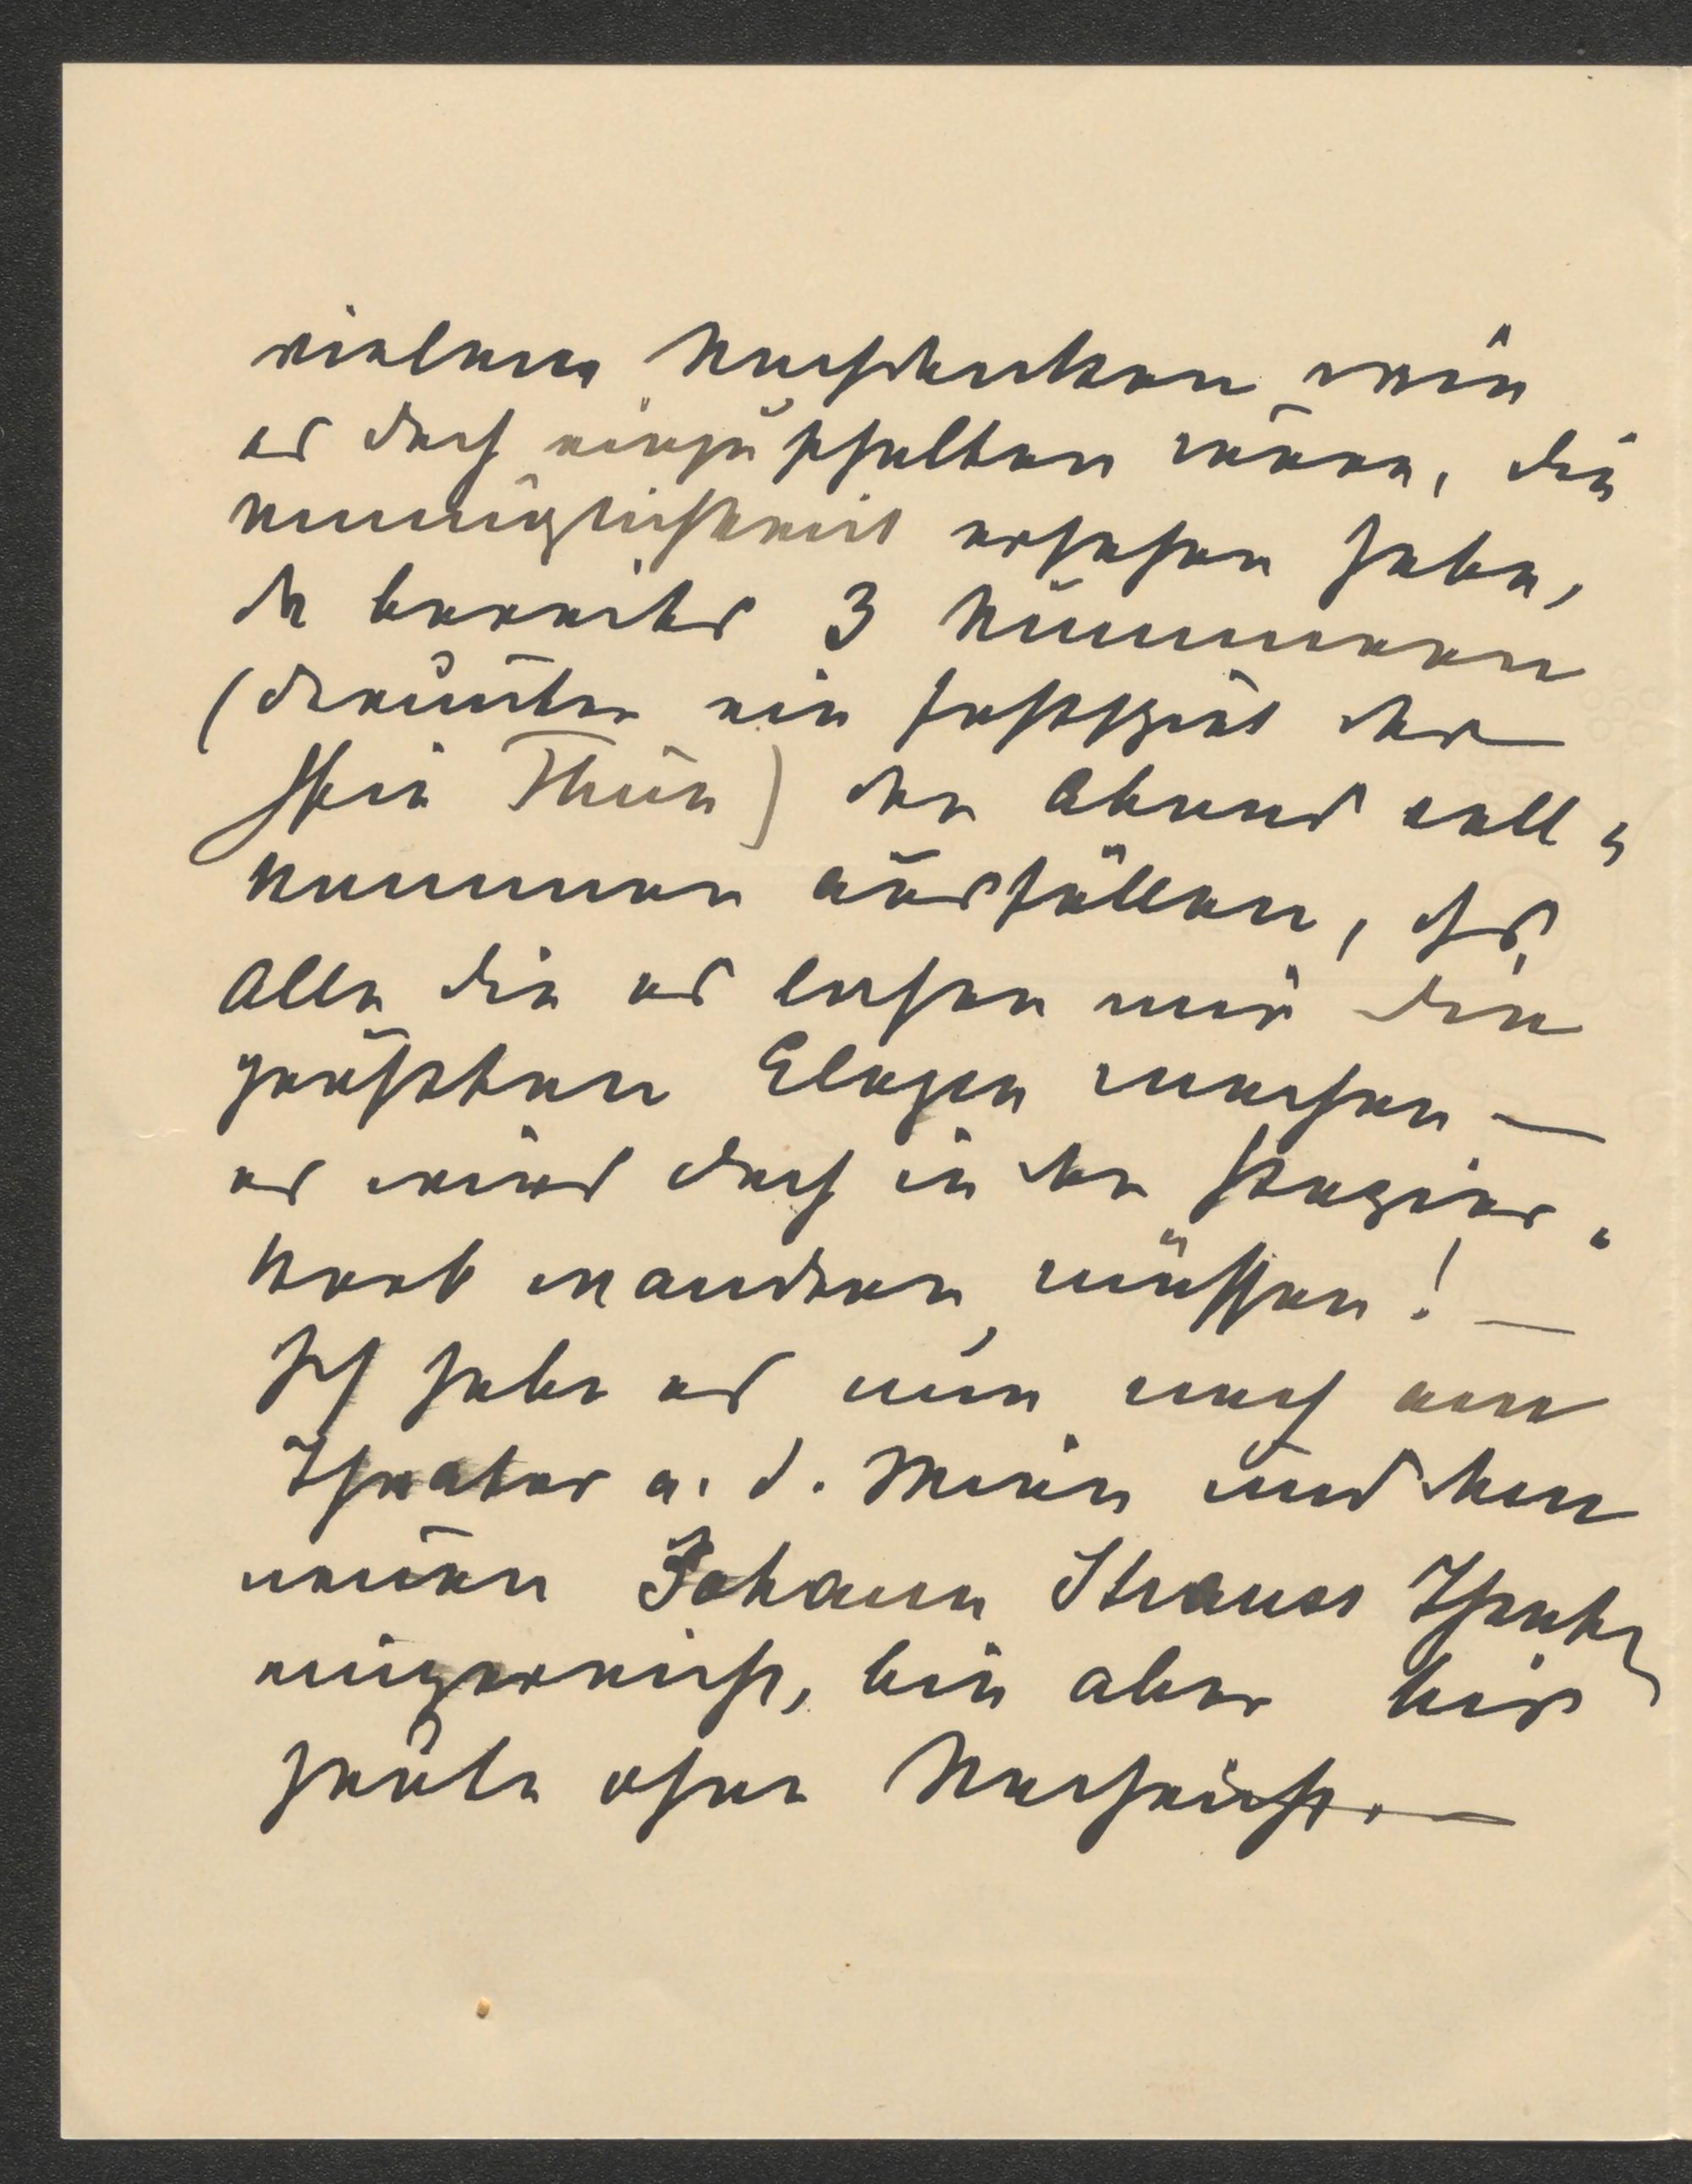 vielem Nachdenken wie
es doch einzuschalten wäre, die
Unmöglichkeit ersehen habe,
da bereits 3 Nummern
(darunter ein Gastspiel der
Thun) den Abend voll-
kommen ausfüllen, ds.
Alle die es lesen mir die
grössten Elogen machen —
es wird doch in den Papier-
korb wandern müssen! —
Ich habe es nun auch am
Theater a. d. Wien und dem
neuen Johann Strauss Theater
eingereicht, bin aber bis
heute ohne Nachricht. —